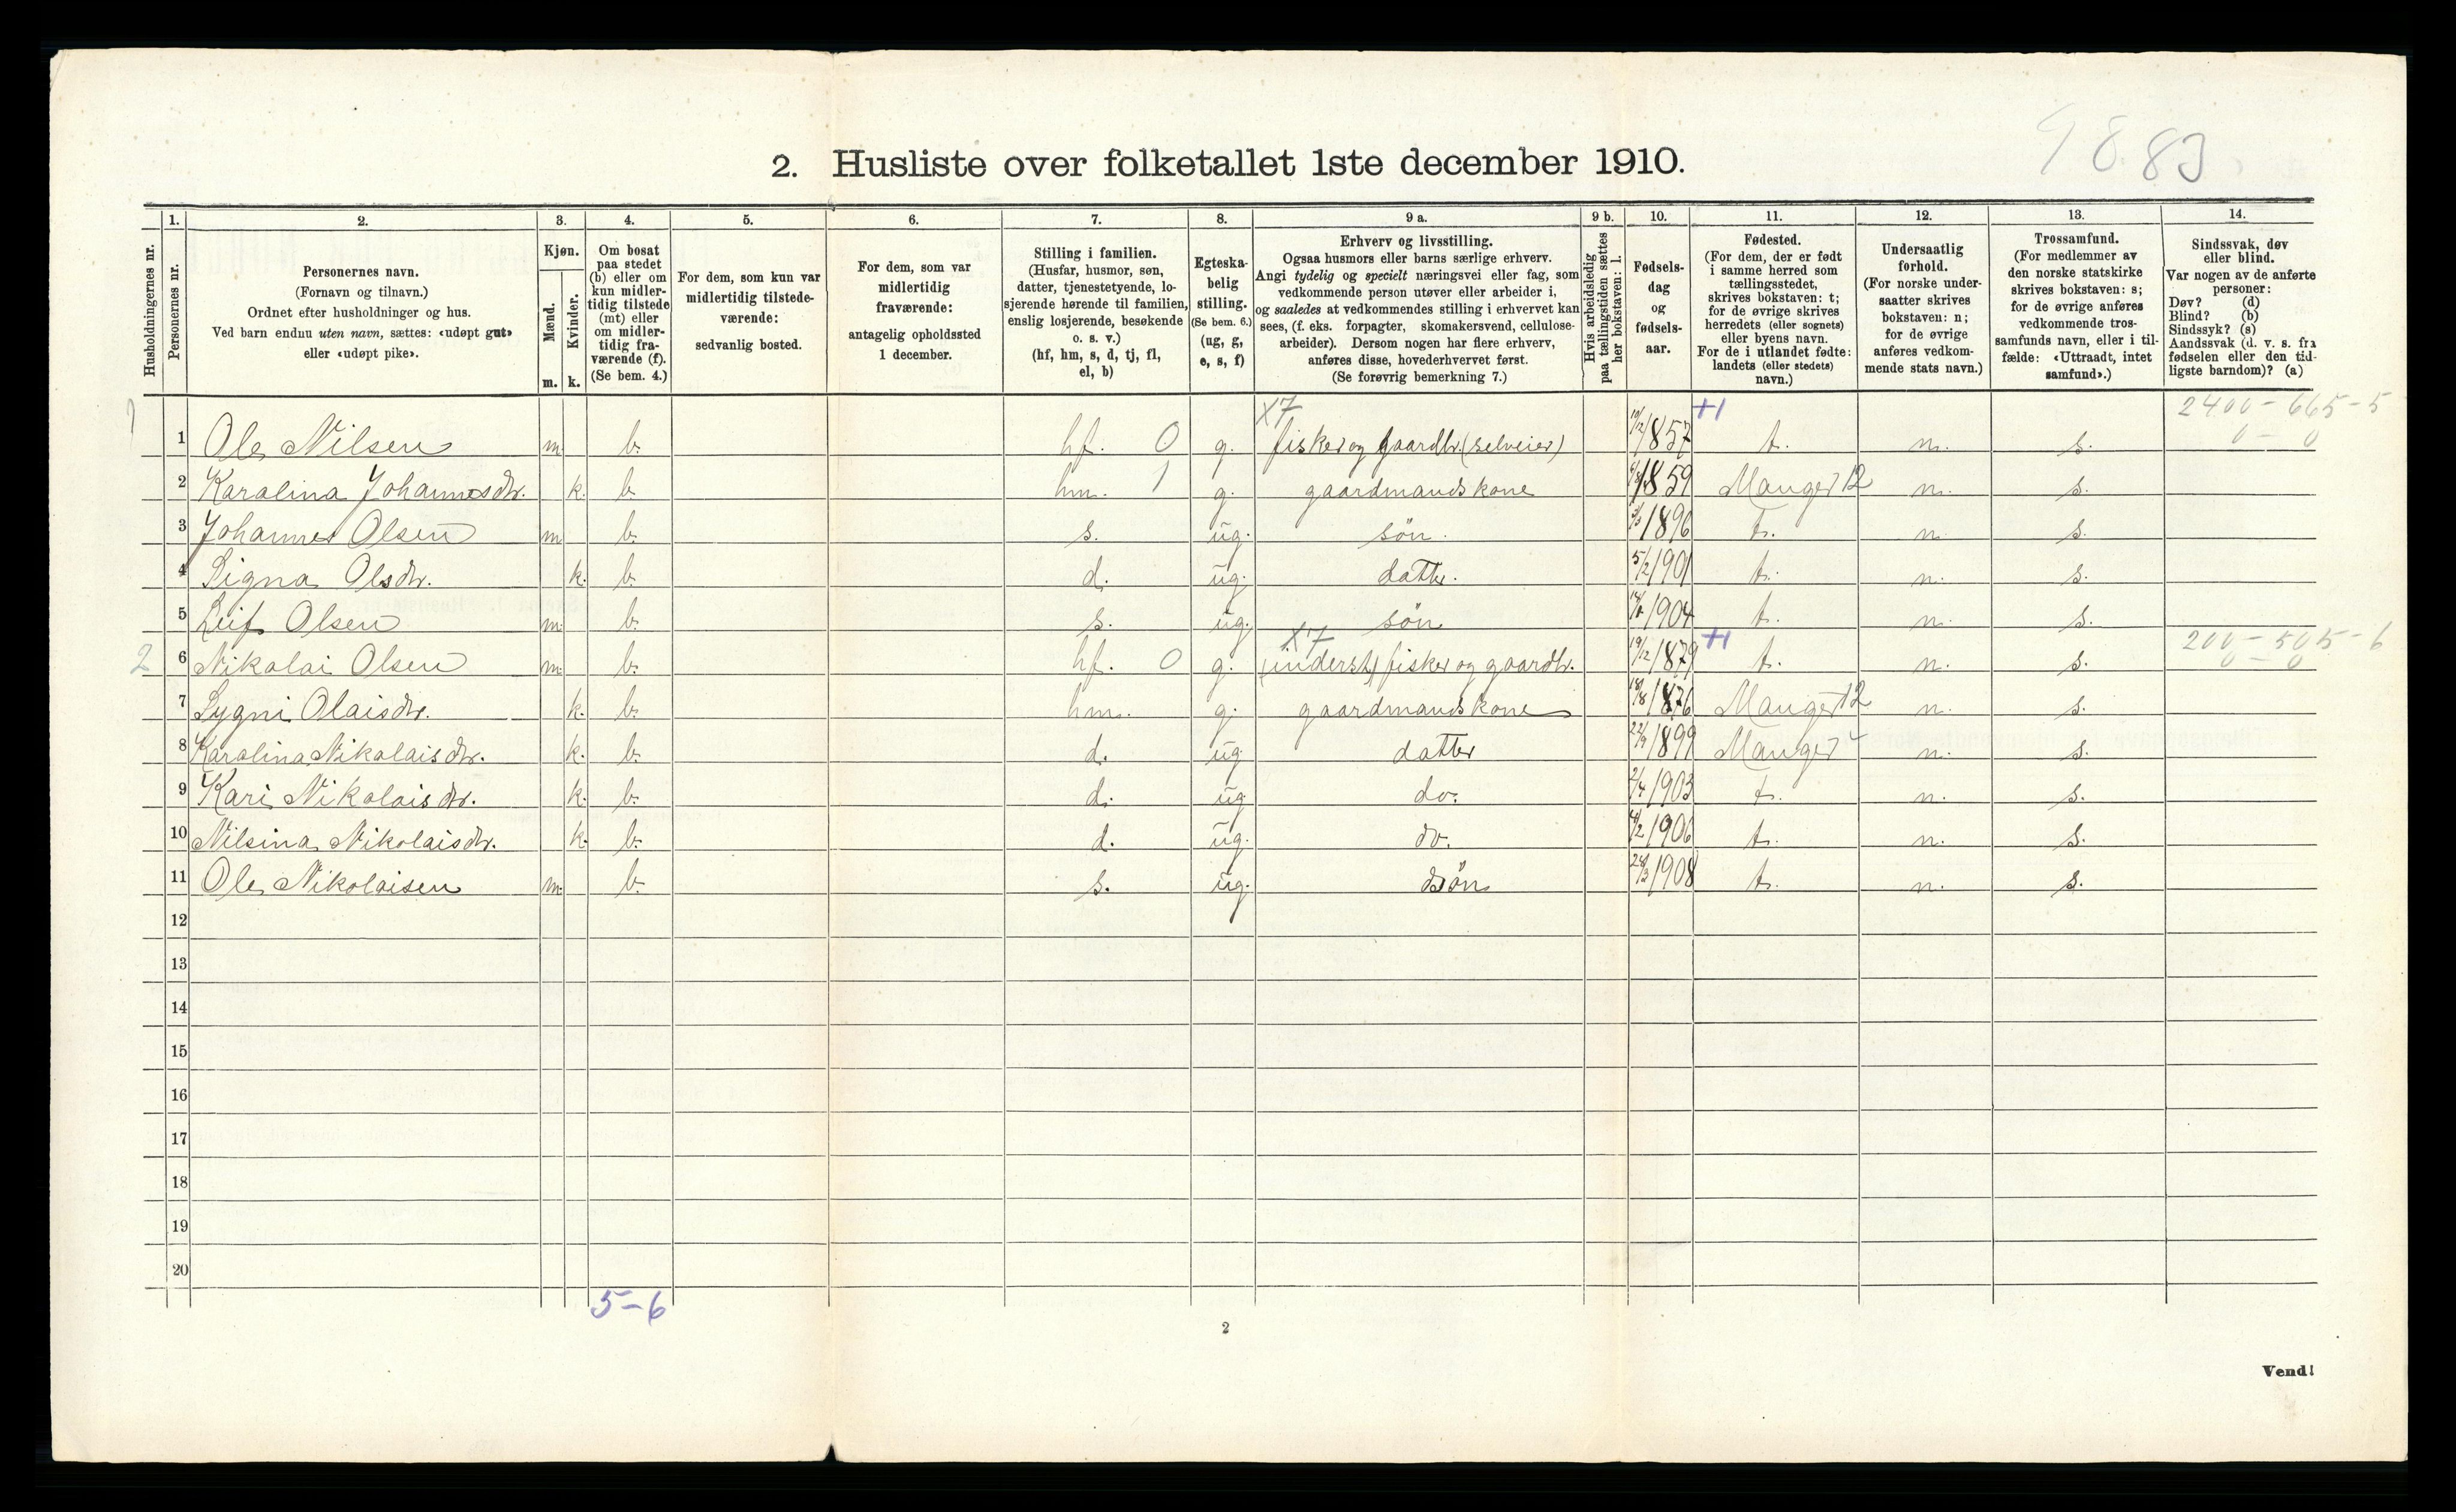 9883
2. Husliste over folketallet 1ste december 1910.
Husholdningernes nr.
1.
Personernes nr.
2.
Personernes navn.
(Fornavn og tilnavn.)
Ordnet efter husholdninger og hus.
Ved barn endnu uten navn, sættes: «udøpt gut»
eller «udøpt pike».
3.
Kjøn.
Mænd.
Kvinder.
m. k.
4.
Om bosat
paa stedet
(b) eller om
kun midler-
tidig tilstede
(mt) eller
om midler-
tidig fra-
værende (f).
(Se bem. 4.)
5.
For dem, som kun var
midlertidig tilstede-
værende:
sedvanlig bosted.
6.
For dem, som var
midlertidig
fraværende:
antagelig opholdssted
1 december.
7.
Stilling i familien.
(Husfar, husmor, søn,
datter, tjenestetyende, lo-
sjerende hørende til familien,
enslig losjerende, besøkende
o. s. v.)
(hf, hm, s, d, tj, fl,
el, b)
8.
Egteska-
belig
stilling.
(Se bem. 6.)
(ug, g,
e, s, f)
9 a.
Erhverv og livsstilling.
Ogsaa husmors eller barns særlige erhverv.
Angi tydelig og specielt næringsvei eller fag, som
vedkommende person utøver eller arbeider i,
og saaledes at vedkommendes stilling i erhvervet kan
sees, (f. eks. forpagter, skomakersvend, cellulose-
arbeider). Dersom nogen har flere erhverv,
anføres disse, hovederhvervet først.
(Se forøvrig bemerkning 7.)
9 b.
Hvis arbeidsledig
paa tællingstiden sættes
her bokstaven: l.
10.
Fødsels-
dag
og
fødsels-
aar.
11.
Fødested.
(For dem, der er født
i samme herred som
tællingsstedet,
skrives bokstaven: t;
for de øvrige skrives
herredets (eller sognets)
eller byens navn.
For de i utlandet fødte:
landets (eller stedets)
navn.)
12.
Undersaatlig
forhold.
(For norske under-
saatter skrives
bokstaven: n;
for de øvrige
anføres vedkom-
mende stats navn.)
13.
Trossamfund.
(For medlemmer av
den norske statskirke
skrives bokstaven: s;
for de øvrige anføres
vedkommende tros-
samfunds navn, eller i til-
fælde: «Uttraadt, intet
samfund».)
14.
Sindssvak, døv
eller blind.
Var nogen av de anførte
personer:
Døv? (d)
Blind? (b)
Sindssyk? (s)
Aandssvak (d. v. s. fra
fødselen eller den tid-
ligste barndom)? (a)
X7 +1 2400-665-5
1 1 Ole Nilsen m. b. hf. 0 g. fisker og gaardbr. (selveier) 10/12 1857 t. n. s. 0-0
2 Karalina Johannesdtr. k. b. hm. 1 g. gaardmandskone 1859 Manger 12 n. s.
3 Johannes Olsen m b. s. ug. søn. 1896 t. n. s.
4 Signa Olsdtr. k. b. d. ug. datter. 5/2 1901 t. n. s.
5 Leif Olsen m. b. s. ug. søn 1904 t. n. s.
X7 +1 200-505-6
2 6 Nikolai Olsen m. b. hf. 0 g. (inderst) fisker og gaardbr. 19/12 1879 t. n. s. 0-0
7 Sygni Olaisdtr. k. b. hm. g. gaardmandskone 18/8 1876 Manger 12 n. s.
8 Karalina Nikolaisdtr. k. b. d. ug. datter 22/9 1899 Manger n. s.
9 Kari Nikolaisdtr. k. b. d. ug do. 2/4 1903 t. n. s.
10 Nilsina Nikolaisdtr. k. b. d. ug. do. 1906 t. n. s.
11 Ole Nikolaisen m. b. s. ug. søn 24/3 1908 t. n. s.
12
13
14
15
16
17
18
19
20
5-6
2
Vend!